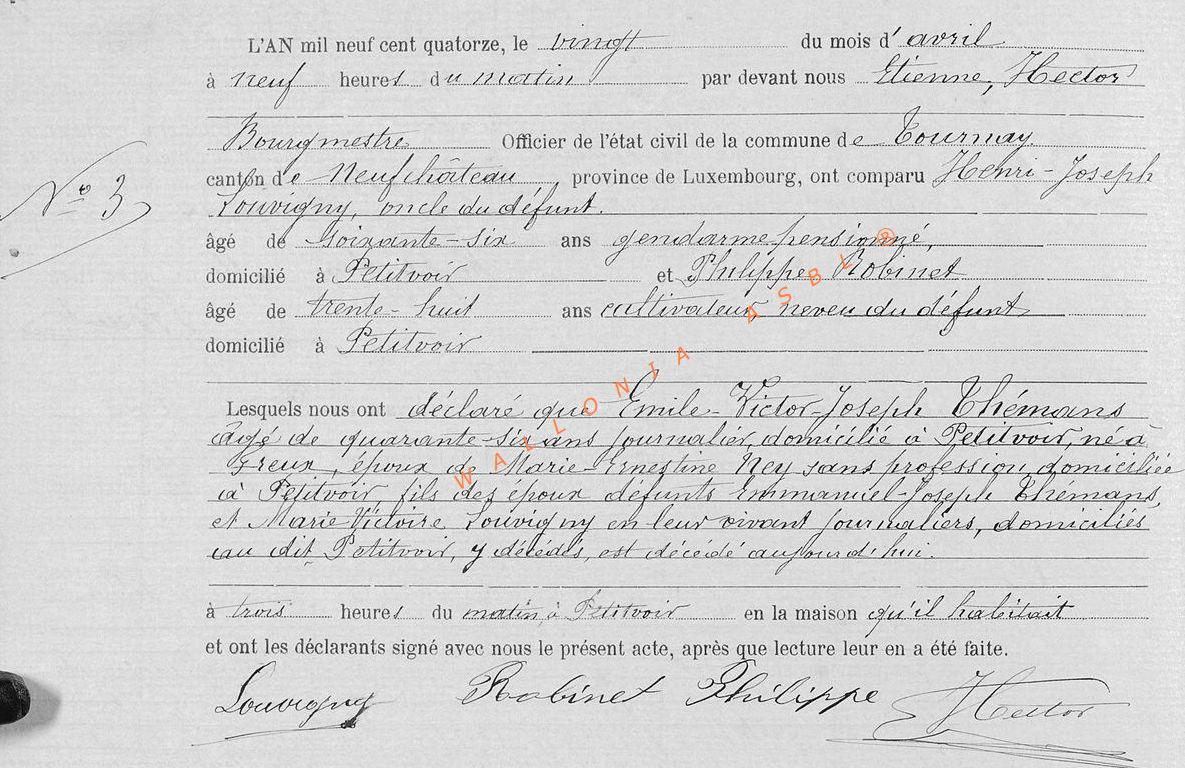 L'AN mil neuf cent quatorze, le vingt du mois d'avril
à neuf heures du matin par devant nous Etienne, Hector
Bourgmestre Officier de l'état civil de la commune de Tournay
canton de Neufchâteau province de Luxembourg, ont comparu Henri-Joseph
N° 3
Louvigny, oncle du défunt.
âgé de soixante-six ans gendarme pensionné,
domicilié à Petitvoir et Philippe Robinet
âgé de trente-huit ans cultivateur neveu du défunt
domicilié à Petitvoir
Lesquels nous ont déclaré que Emile-Victor-Joseph Thémans
âgé de quarante-six ans journalier, domicilié à Petitvoir, né à
époux de Marie-Ernestine Ney sans profession, domiciliée
à Petitvoir, fils des époux défunts Emmanuel-Joseph Thémans
et Marie Victoire Louvigny en leur vivant journaliers, domiciliés
au dit Petitvoir, y décédés, est décédé aujourd'hui.
à trois heures du matin, à Petitvoir en la maison qu'il habitait
et ont les déclarants signé avec nous le présent acte, après que lecture leur en a été faite.
Louvigny Robinet Philippe Hector
WALLONIA ASBL ®